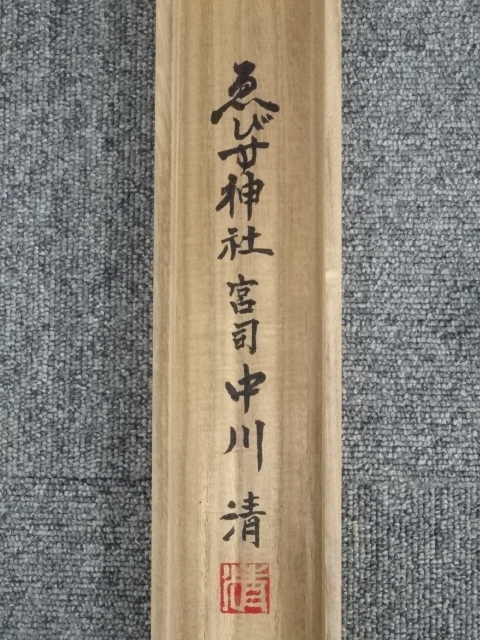 ゑびす神社宮司中川清
清